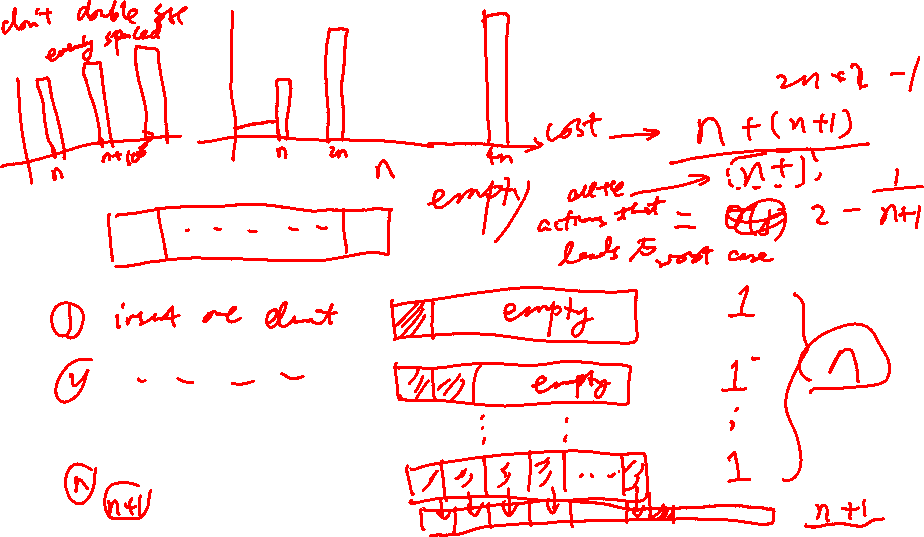 don't double size
evenly spaced
n
n+100
n
2n
4n
n
empty
cost
2n+2 -1
n+(n+1)
(n+1)
all the
actions that
leads to worst case
= 2 - 1/n+1
① insert one element
empty
1
② - - - -
empty
1
n
⋮
1
n
n+1
n+1